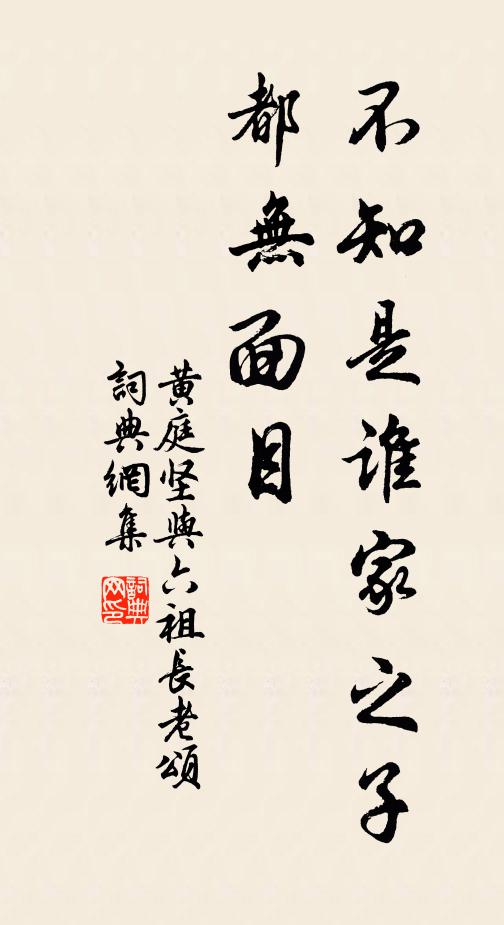 不知是誰家之子
都無面目
黄庭坚與六祖長老頌
詞典網集
詞典网印